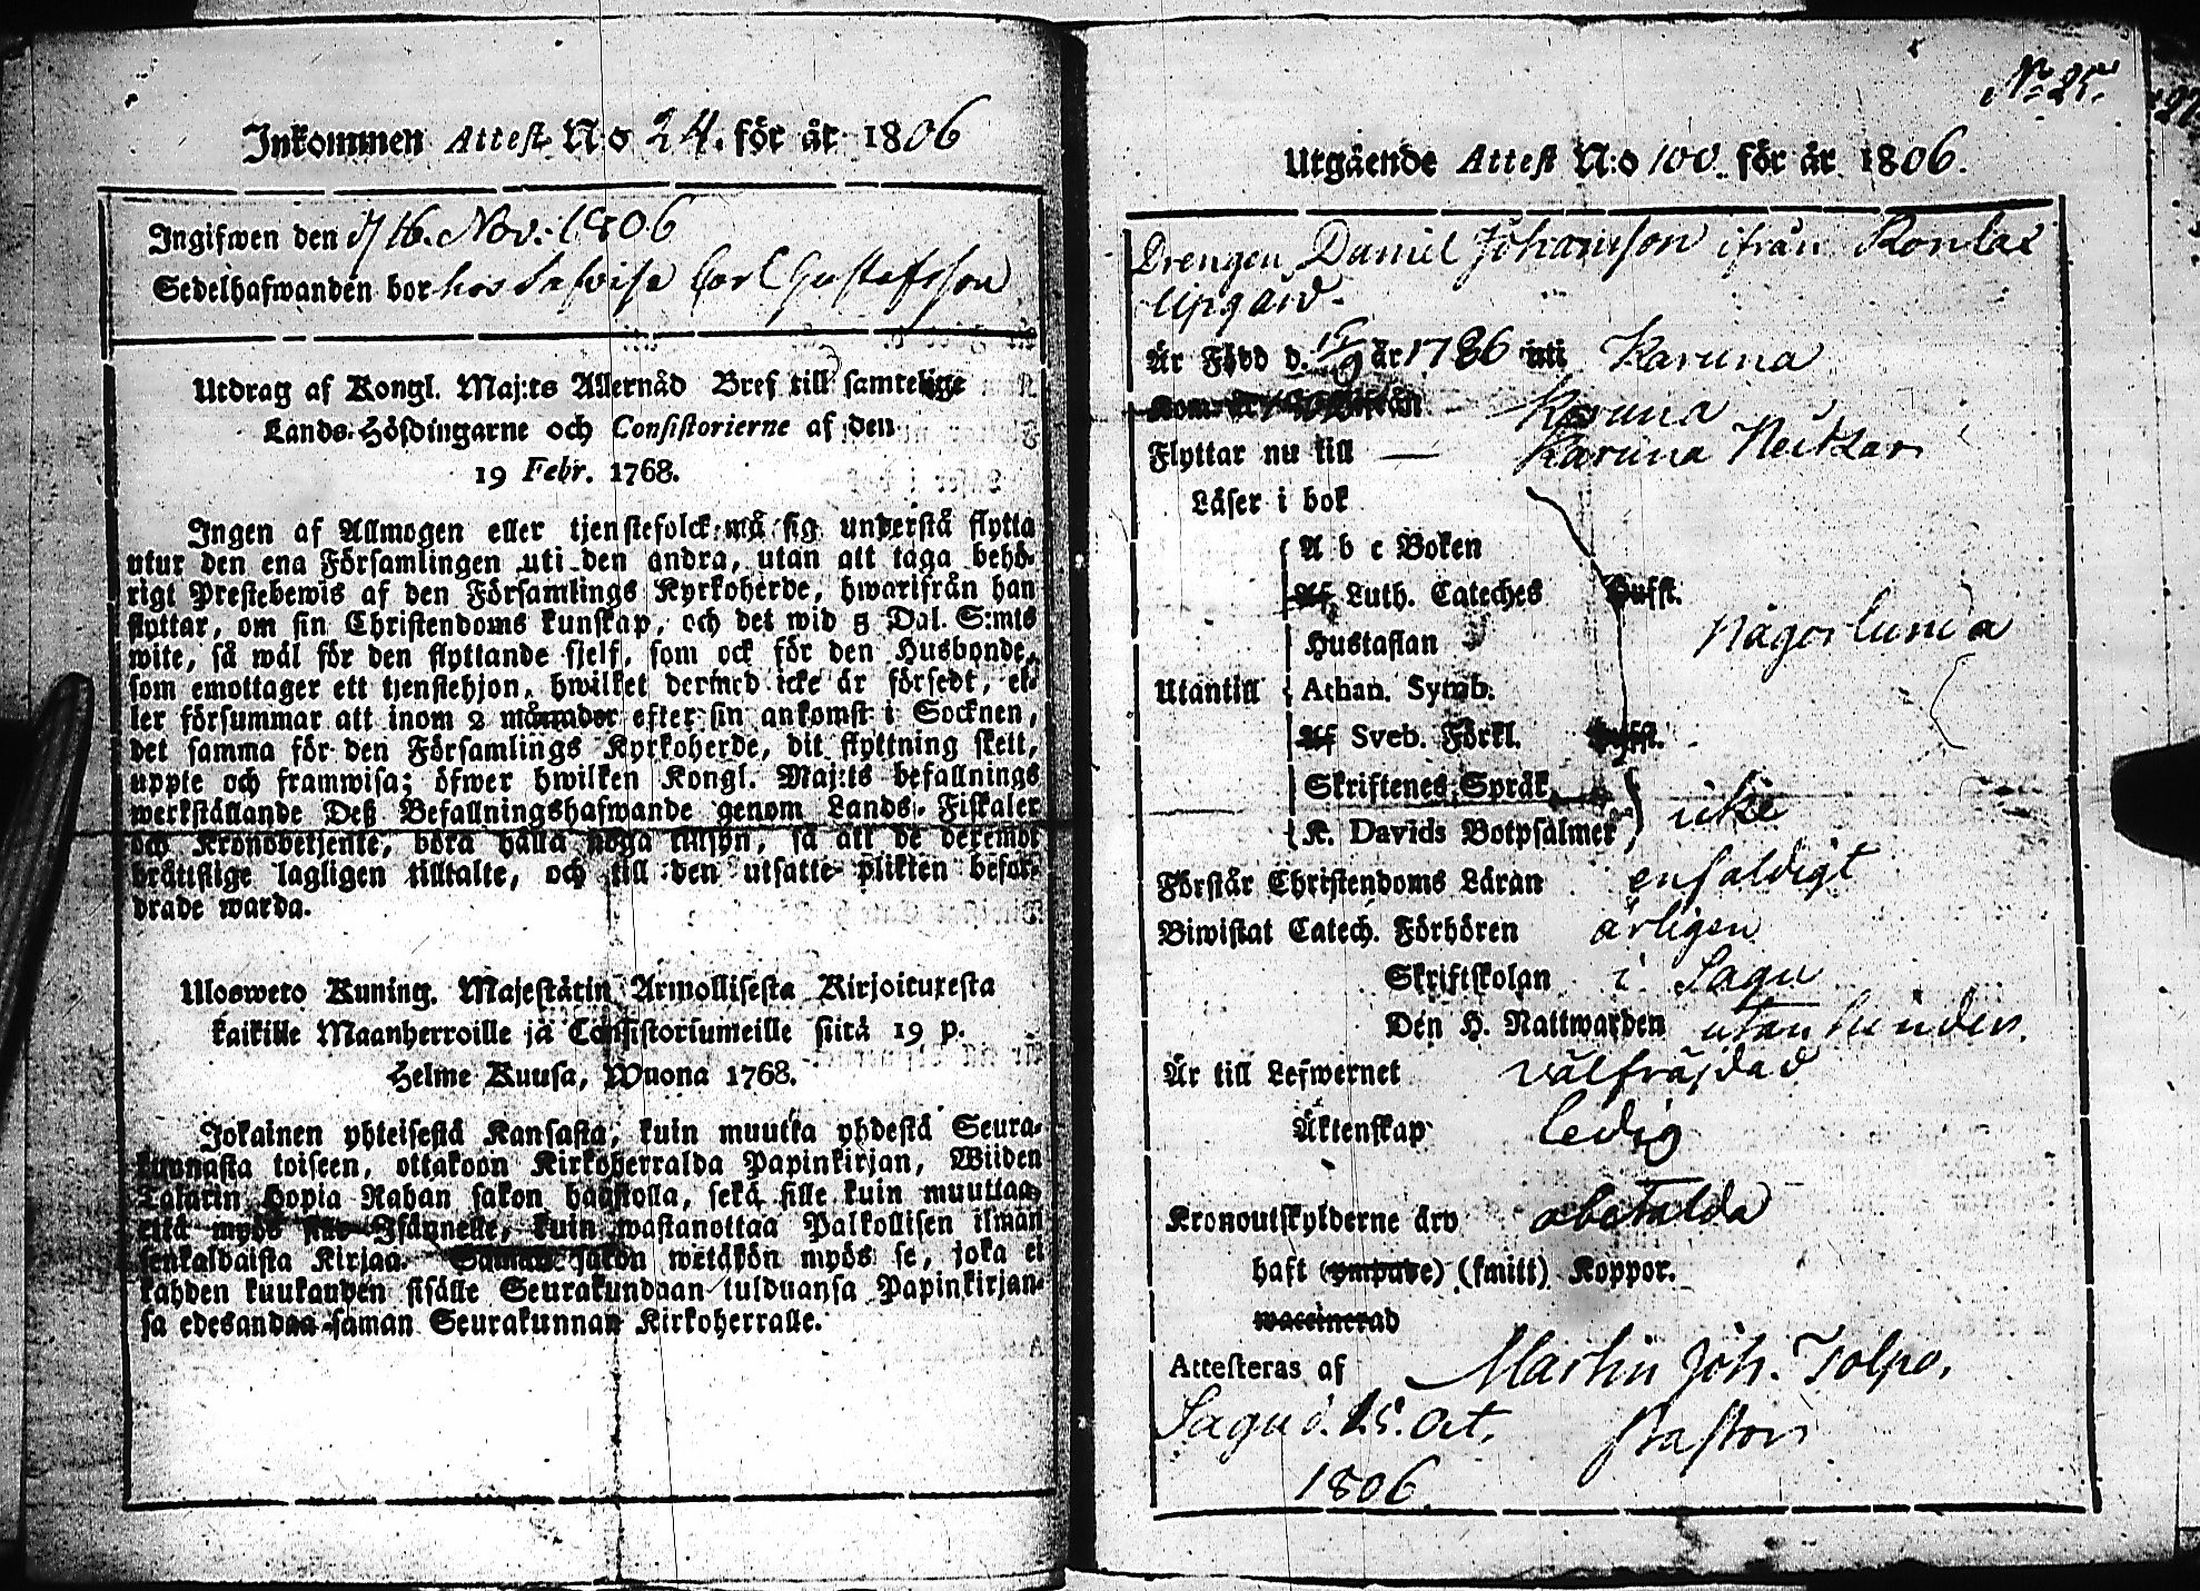 Inkommen Attest N:o 24. för år 1806
Ingifwen den d 16. Nov. 1806
Sedelhafwanden bor hos Carl Gustafsson
Utdrag af Kongl. Maj:ts Allernåd Bref till samtelige
Lands-Höfdingarne och Consistorierne af den
19 Febr. 1768.
Ingen af Allmogen eller tjenstefolck må sig understå flytta
utur den ena Församlingen uti den andra, utan att taga behö-
rigt Prestebewis af den Församlings Kyrkoherde, hwarifrån han
flyttar, om sin Christendoms kunskap, och det wid 5 Dal. S:mts
wite, så wäl för den flyttande sjelf, som ock för den Husbonde,
som emottager ett tjenstehjon, hwilket dermed icke är försedt, el-
ler försummar att inom 2 månader efter sin ankomst i Socknen,
det samma för den Församlings Kyrkoherde, dit flyttning skett,
uppte och framwisa; öfwer hwilken Kongl. Maj:ts befallnings
werkställande Deß Befallningshafwande genom Lands-Fiskaler
och Kronobetjente, böra hålla noga tillsyn, så att de deremot
bråttslige lagligen tilltalte, och till den utsatte plikten befor-
drade warda.
Ulosweto Kuning. Majestätin Armollisesta Kirjoituxesta
kaikille Maanherroille ja Consistoriumeille siitä 19 p.
Helme Kuusa, Wuona 1768.
Jokainen yhteisestä Kansasta, kuin muutta yhdestä Seura-
kunnasta toiseen, ottakoon Kirkoherralda Papinkirjan, Wiiden
Talarin Hopia Rahan sakon haastolla, sekä sille kuin muuttaa,
että myös sille Isännelle, kuin wastanottaa Palkollisen ilman
senkaldaista Kirjaa. Saman sakon wetäkön myös se, joka ei
kahden kuukauden sisälle Seurakundaan tulduansa Papinkirjan-
sa edesandaa saman Seurakunnan Kirkoherralle.
N:o 25.
Utgående Attest N:o 100 för år 1806.
Drengen Daniel Johansson ifrån Ronlax
Upgård.
Är Född d. 15/9 år 1786 uti Karuna
Kom år ifrån Karuna
Flyttar nu till — Karuna
Läser i bok
A b c Boken
Af Luth. Cateches Buffst.
Hustaflan någorlunda
Utantill Athan. Symb.
Af Sveb. Förkl. Buffst.
Skriftenes Språk
K. Davids Botpsalmer icke
Förstår Christendoms Läran enfaldigt
Biwistat Catech. Förhören årligen
Skriftskolan i Sagu
Den H. Nattwarden utan hinder.
Är till Lefwernet wälfräjdad
Äktenskap ledig
Kronoutskylderne äro obetalda
haft (ympade) (smitt) Koppor.
waccinerad
Attesteras af Martin Joh. Tolpo,
Sagu d. 15. Oct. Pastor
1806.